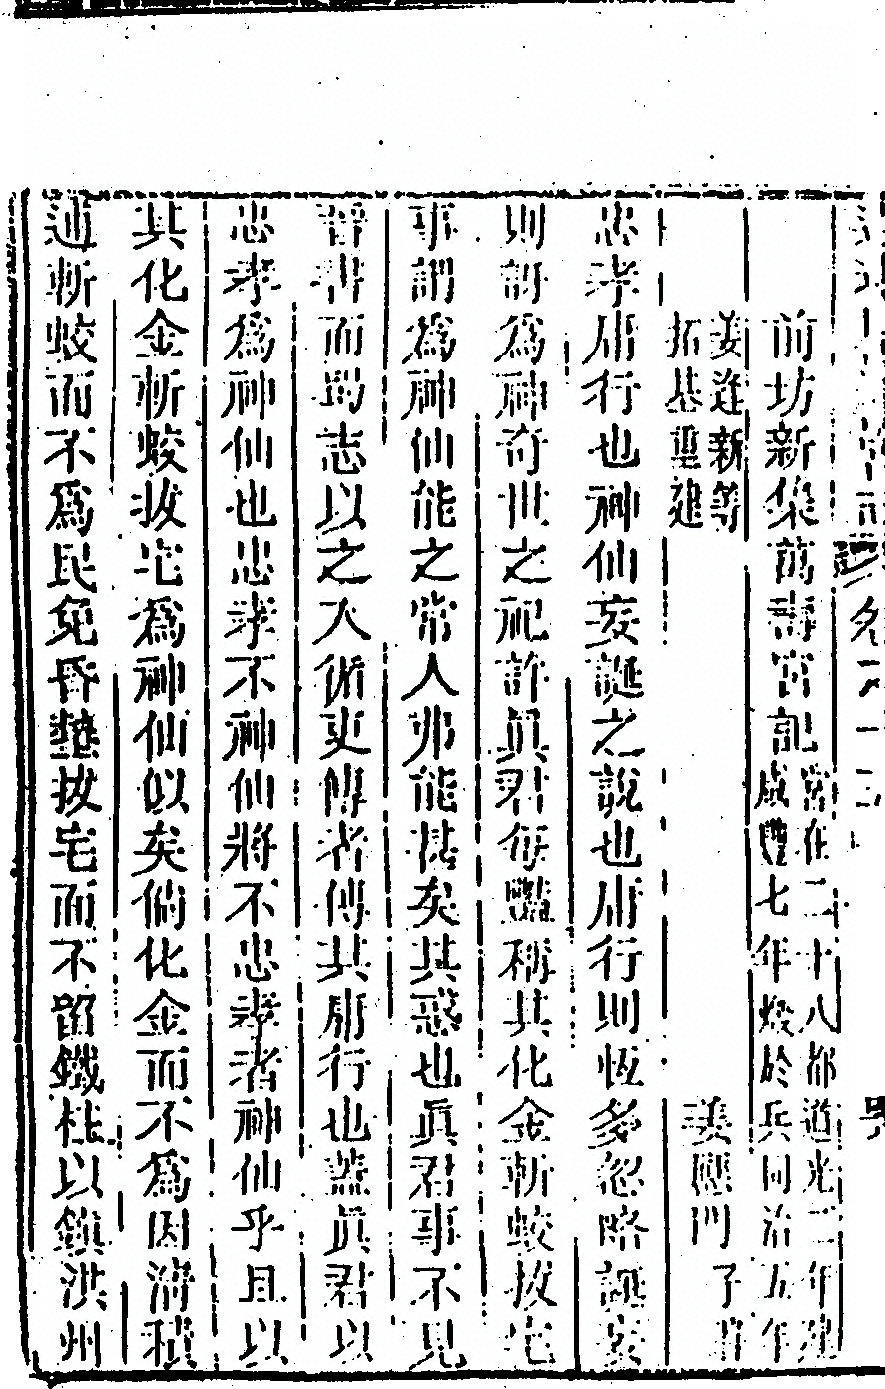 前坊新集萬壽宮記宮在二十八都道光二年建
咸豐七年燬於兵同治五年
姜連新等
拓基重建
姜應門
忠孝庸行也神仙妄誕之說也庸行則恆多忽略誕妄
則訝為神奇世之祀許眞君每豔稱其化金斬蛟拔宅
事謂為神仙能之常人弗能甚矣其惑也眞君事不見
晉書而蜀志以之入循吏傳者傳其庸行也蓋眞君以
忠孝為神仙也忠孝不神仙將不忠孝者神仙乎且以
其化金斬蛟拔宅為神仙似矣倘化金而不為因濟積
逋斬蛟而不為民免昏墊拔宅而不留鐵柱以鎮洪州